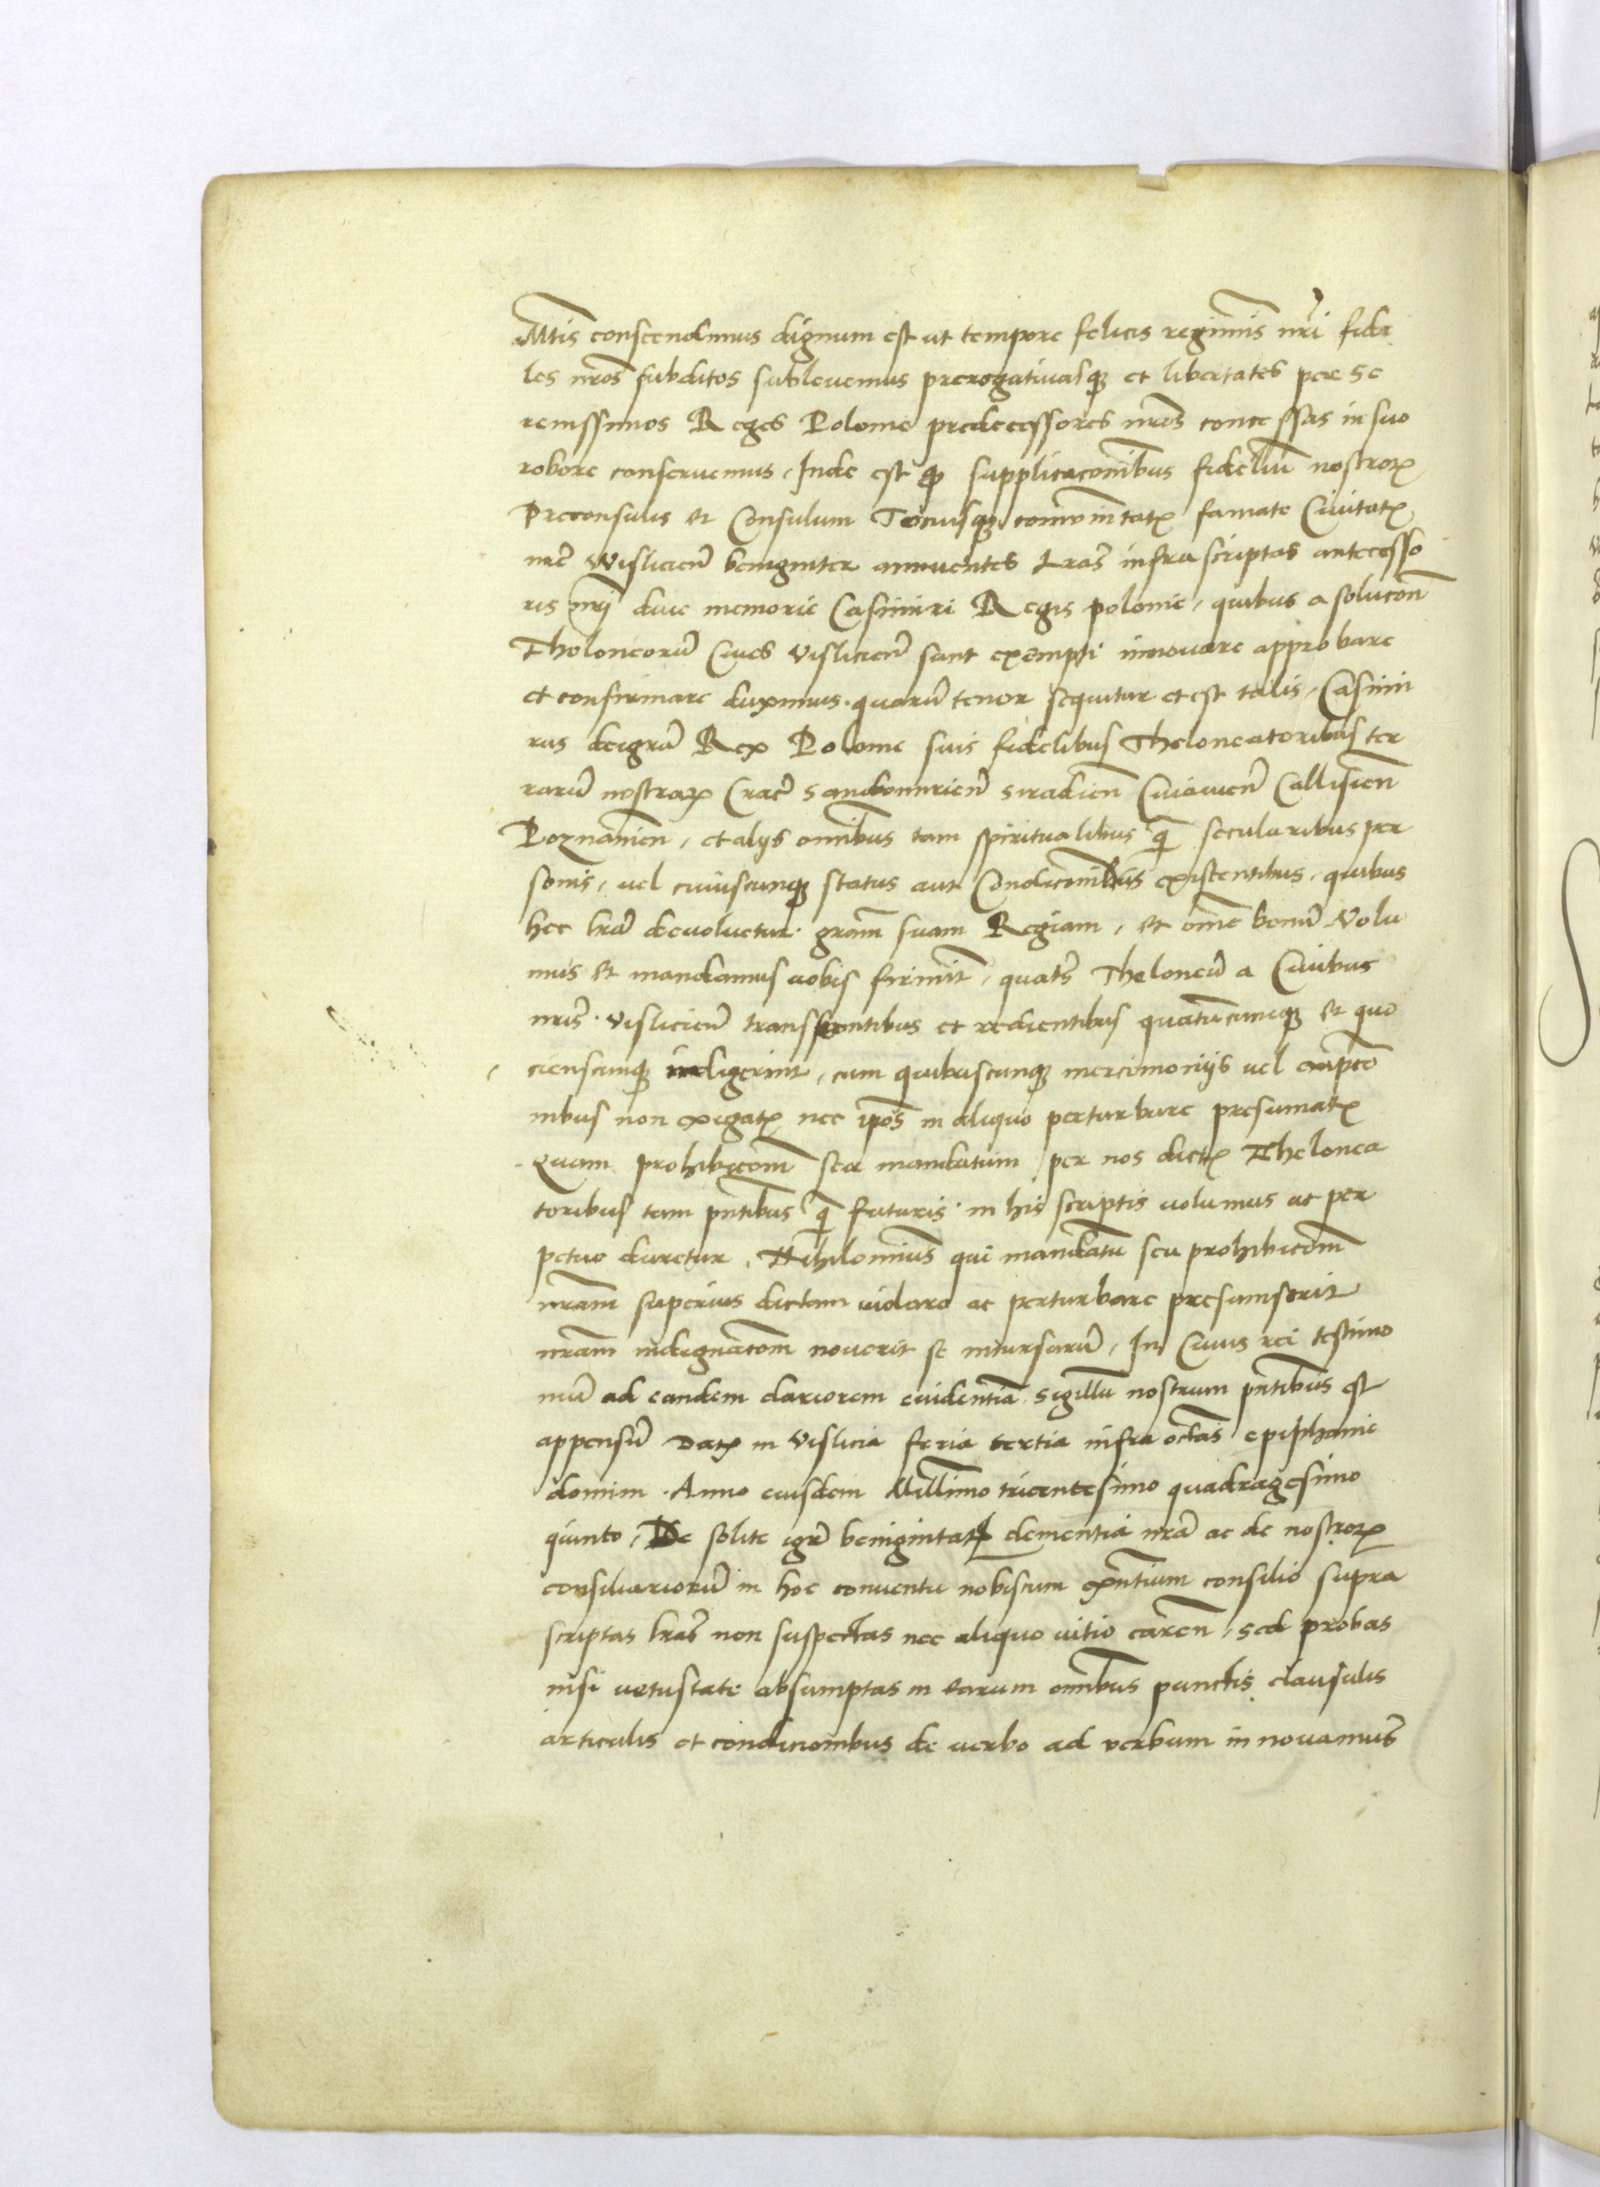 Mtis conscendimus dignum est ut tempore felicis regiminis nri fide
les nros subditos sublevemus prerogativasq et libertates per Se
renissimos Reges Polonie predecessores nros concessas in suo
robore conservemus. Inde est q supplicaconibus fidelium nostror
Preconsulis et Consulum Tociusq comunitat famate Civitat
nre Wislicien benigniter annuentes Lras infrascriptas antecesso
ris nri dive memorie Casimiri Regis polonie, quibus a solucon
Tholoneoru Cives Vislicien sunt exempti innovare approbare
et confirmare duximus. quaru tenor sequitur et est talis, Casimi
rus dei gra Rex Polonie suis fidelibus Theloneatoribus ter
raru nostrar Crac Sandomirien Siradien Cuiavien Callisien
Poznanien, et alys omnibus tam spiritualibus q secularibus per
sonis, vel cuiuscunq status aut Condiconibus existentibus, quibus
hec lra devolvetur. gram suam Regiam, et ome bonu. Volu
mus et mandamus vobis firmit, quats Theloneu a Civibus
nris. Vislicien transeuntibus et redientibus quatucunq et quo
cienscunq indigerint, cum quibuscunq mercimonys vel empco
nibus non exigat nec ipos in aliquo perturbare presumat
Quam prohibicom seu mandatum per nos dict Thelonea
toribus tam pntibus q futuris in his scriptis volumus ac per
petuo duretur, Nihilominus qui mandatu seu prohibicom
nram superius dictam violare ac perturbare presumserit
nram indignacom noverit se incursuru, In Cuius rei testimo
niu ad eandem clariorem evidentia sigillu nostrum pntibus est
appensu Dat in Vislicia feria tertia infra octas epiphanie
domini. Anno eiusdem Millimo tricentesimo quadragesimo
quinto, De solite igr benignitat clementia nra ac de nostror
consiliarioru in hoc conventu nobiscum exntium consilio supra
scriptas lras non suspectas nec aliquo vitio caren, sed probas
nisi vetustate absumptas in earum omnibus punctis clausulis
articulis et condicionibus de verbo ad verbum innovamus